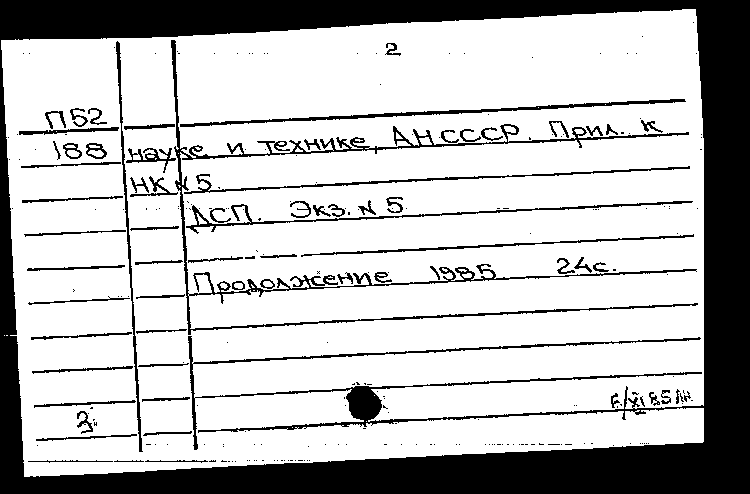 2
П52
188 науке и технике, АН СССР. Прил. к
НК №5.
ДСП. Экз. №5
Продолжение 1985 24с.
3.